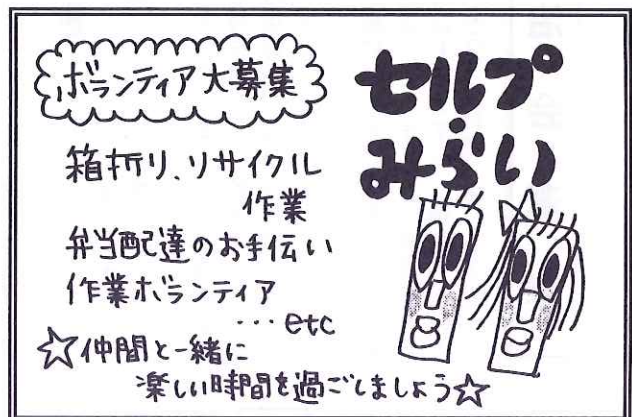 ボランティア大募集
箱折り、リサイクル
作業
弁当配達のお手伝い
作業ボランティア
…etc
☆仲間と一緒に
楽しい時間を過ごしましょう☆
セルプ
・
みらい